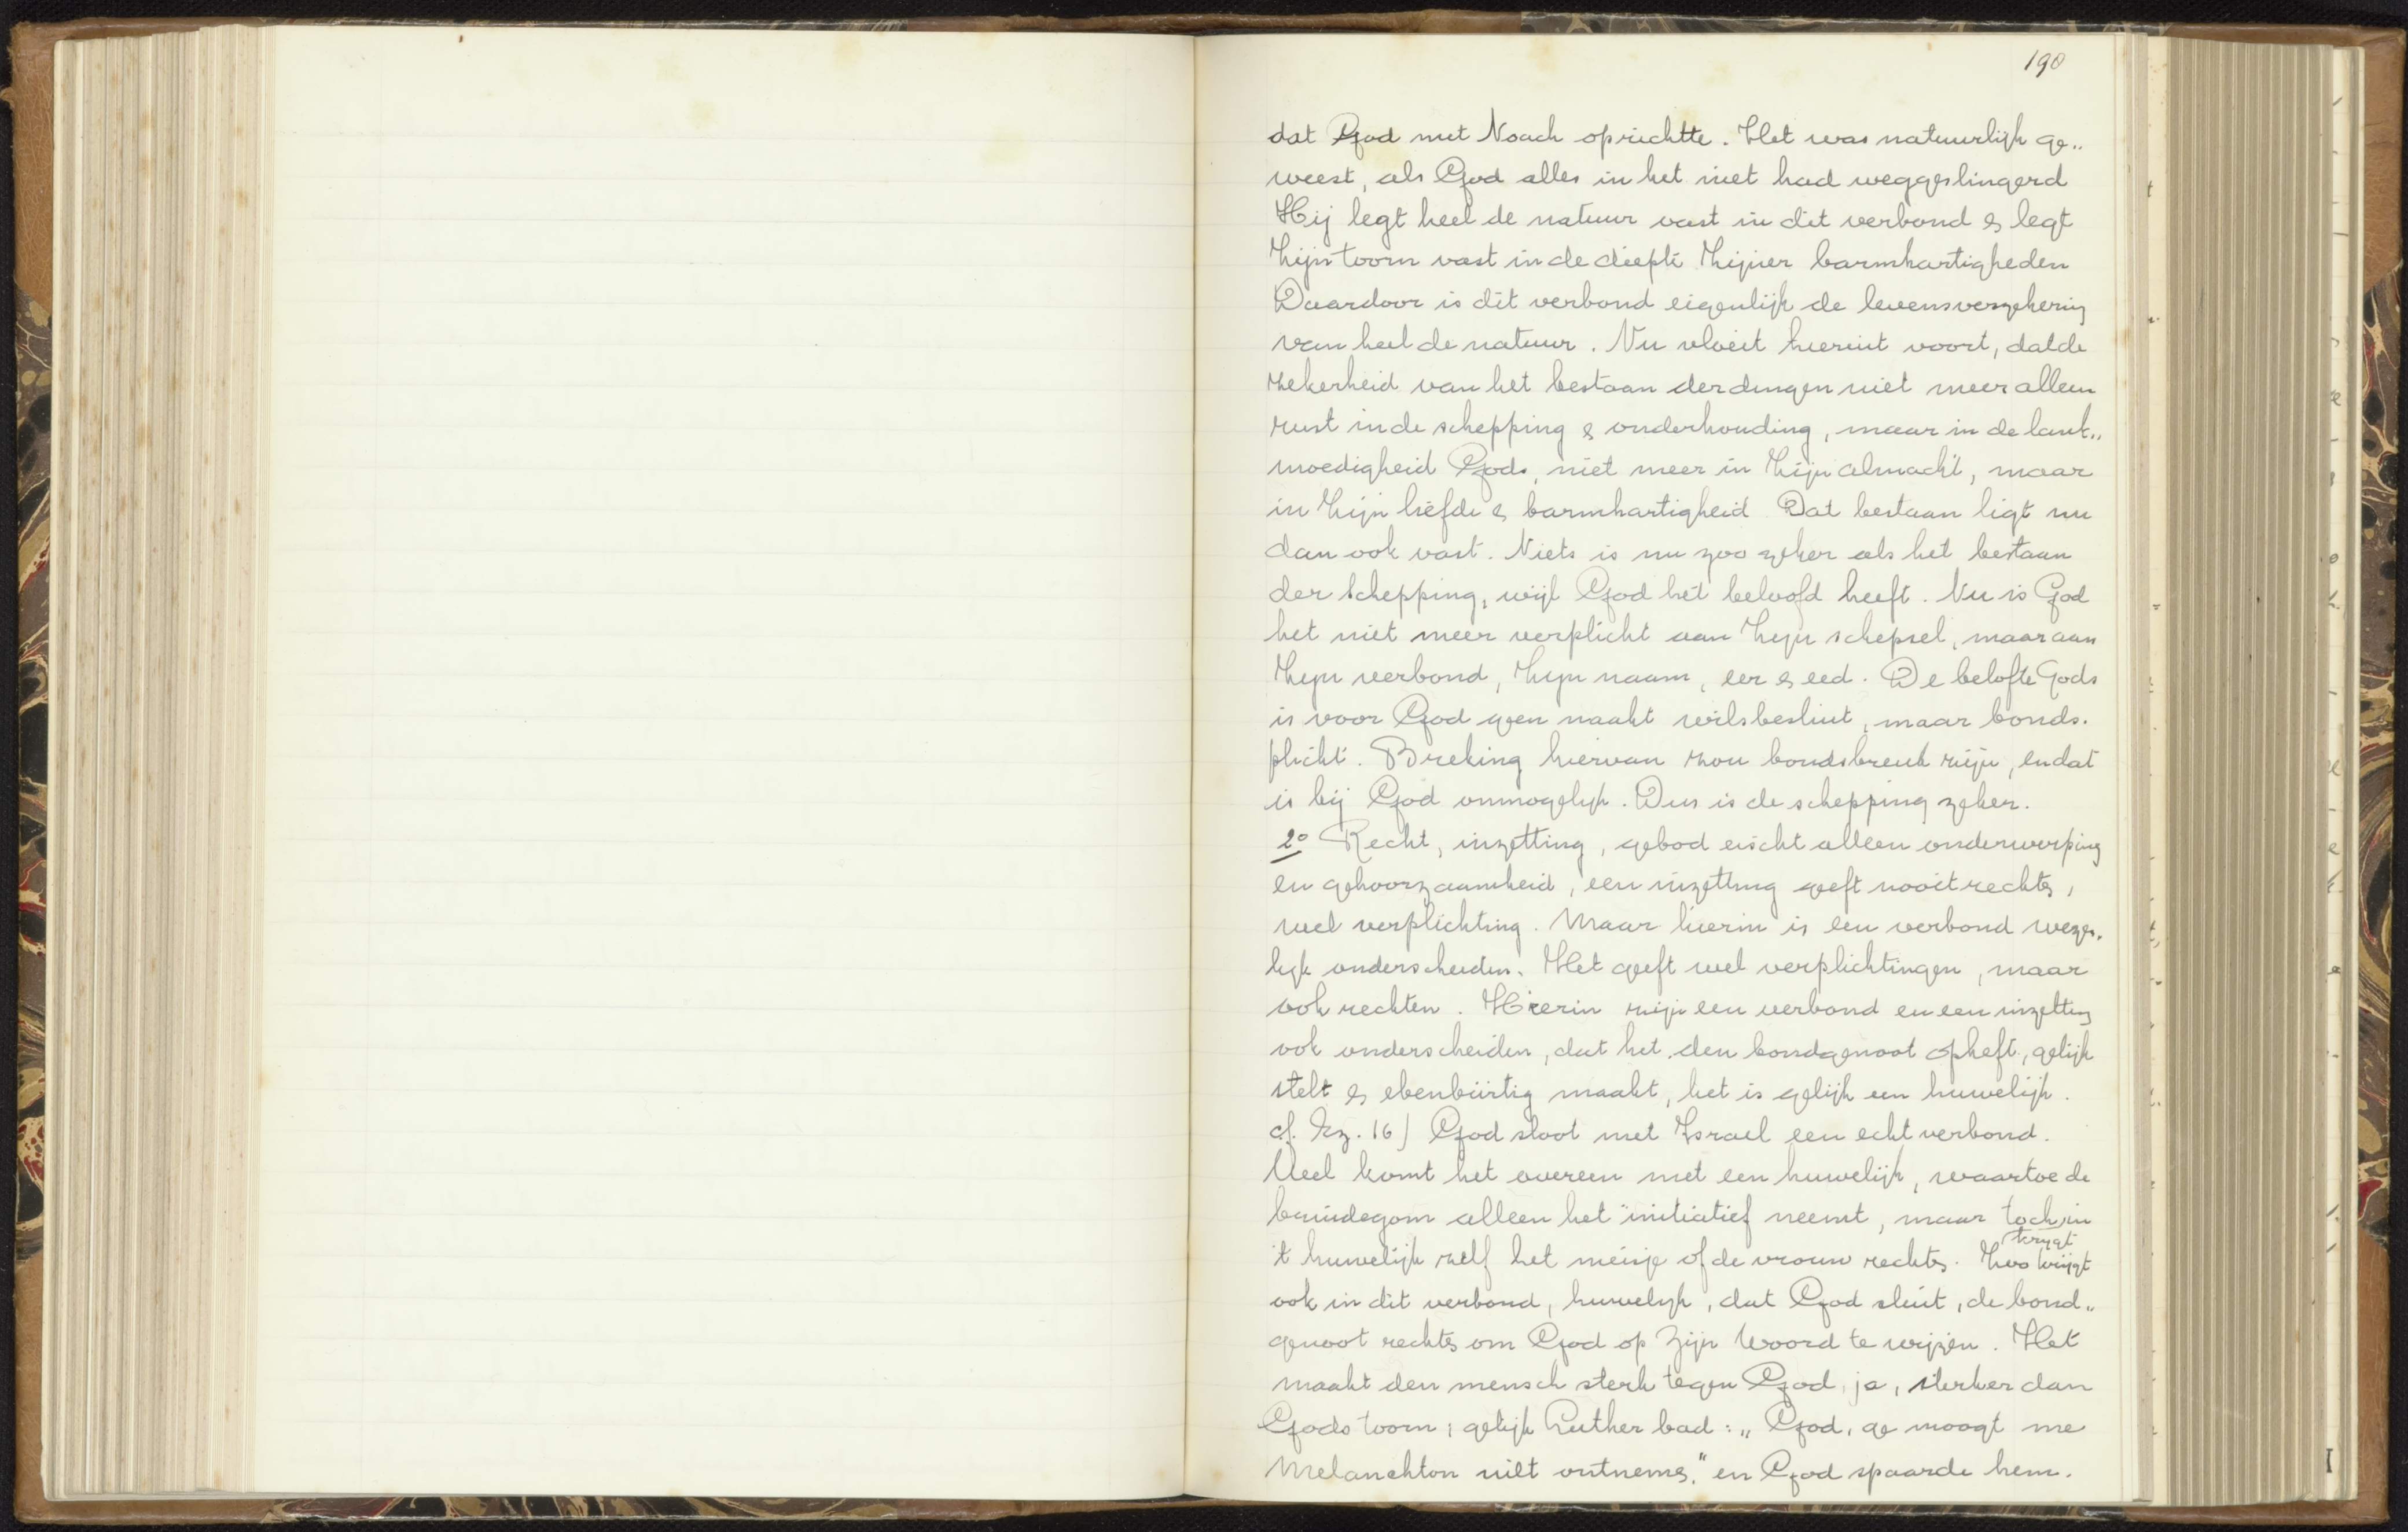 190
dat God met Noach oprichtte. Het was natuurlijk ge„
weest, als God alles in het niet had weggeslingerd
Hij legt heel de natuur vast in dit verbond & legt
Zijn toorn vast in de diepte Zijner barmhartigheden
Daardoor is dit verbond eigenlijk de levensverzekering
van heel de natuur. Nu vloeit hieruit voort, dat de
zekerheid van het bestaan der dingen niet meer alleen
rust in de schepping & onderhouding, maar in de lank„
moedigheid Gods, niet meer in Zijn almacht, maar
in Zijn liefde & barmhartigheid Dat bestaan ligt nu
dan ook vast. Niets is nu zoo zeker als het bestaan
der schepping, wijl God het beloofd heeft. Nu is God
het niet meer verplicht aan Zijn schepsel, maar aan
Zijn verbond, Zijn naam, eer & eed. De belofte Gods
is voor God geen naakt wilsbesluit, maar bonds.
plicht. Breking hiervan zou bondsbreuk zijn, en dat
is bij God onmogelijk. Dus is de schepping zeker.
2o Recht, inzetting, gebod eischt alleen onderwerping
en gehoorzaamheid, een inzetting geeft nooit rechts,
wel verplichting. Maar hierin is een verbond weze.
lijk onderscheiden. Het geeft wel verplichtingen, maar
ook rechten. Hierin zijn een verbond en een inzetting
ook onderscheiden, dat het den bondgenoot opheft, gelijk
stelt & ebenbürtig maakt, het is gelijk een huwelijk.
cf. Ez. 16) God sloot met Israel een echt verbond.
Veel komt het overeen met een huwelijk, waartoe de
bruidegom alleen het initiatief neemt, maar toch in
krijgt
't huwelijk zelf het meisje of de vrouw rechts. Zoo krijgt
ook in dit verbond, huwelijk, dat God sluit, de bond„
genoot rechts om God op Zijn Woord te wijzen. Het
maakt den mensch sterk tegen God, ja, sterker dan
Gods toorn; gelijk Luther bad: „God, ge moogt me
Melanchton niet ontnemen." en God spaarde hem.